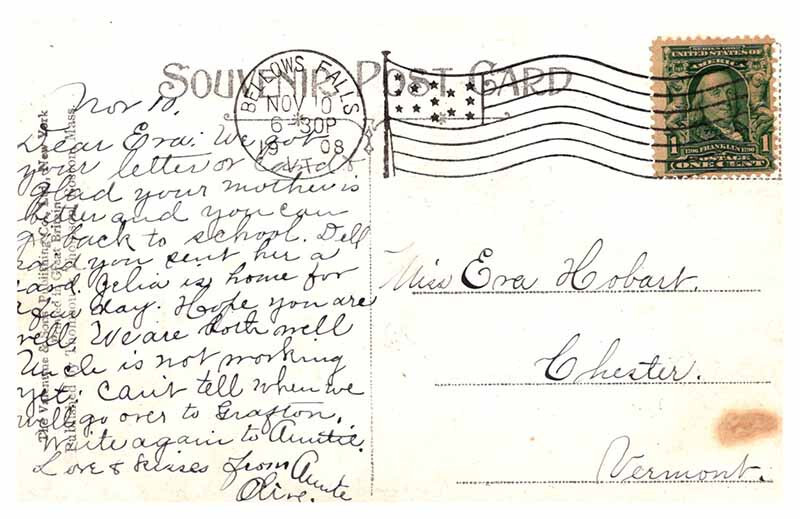 SOUVENIR POST CARD
BELLOWS FALLS
NOV 10
6-30P
1908
VT.
SERIES 1902
UNITED STATES OF
AMERICA
1706 FRANKLIN 1790
POSTAGE
1 ONE CENT 1
Nov 10.
Dear Eva: We got
your letter or card
Glad your mother is
better and you can
go back to school. Dell
said you sent her a
card. Zelia is home for
a day. Hope you are
well. We are both well
Uncle is not working
yet. Can't tell when we
will go over to Grafton.
Write again to Auntie.
Love & kisses from Aunte
Olive.
Miss Eva Hobart.
Chester.
Vermont.
The Valentine & Sons Publishing Co., Ltd., New York
Printed in Great Britain
Published by Thompson & Thompson, Boston, Mass.